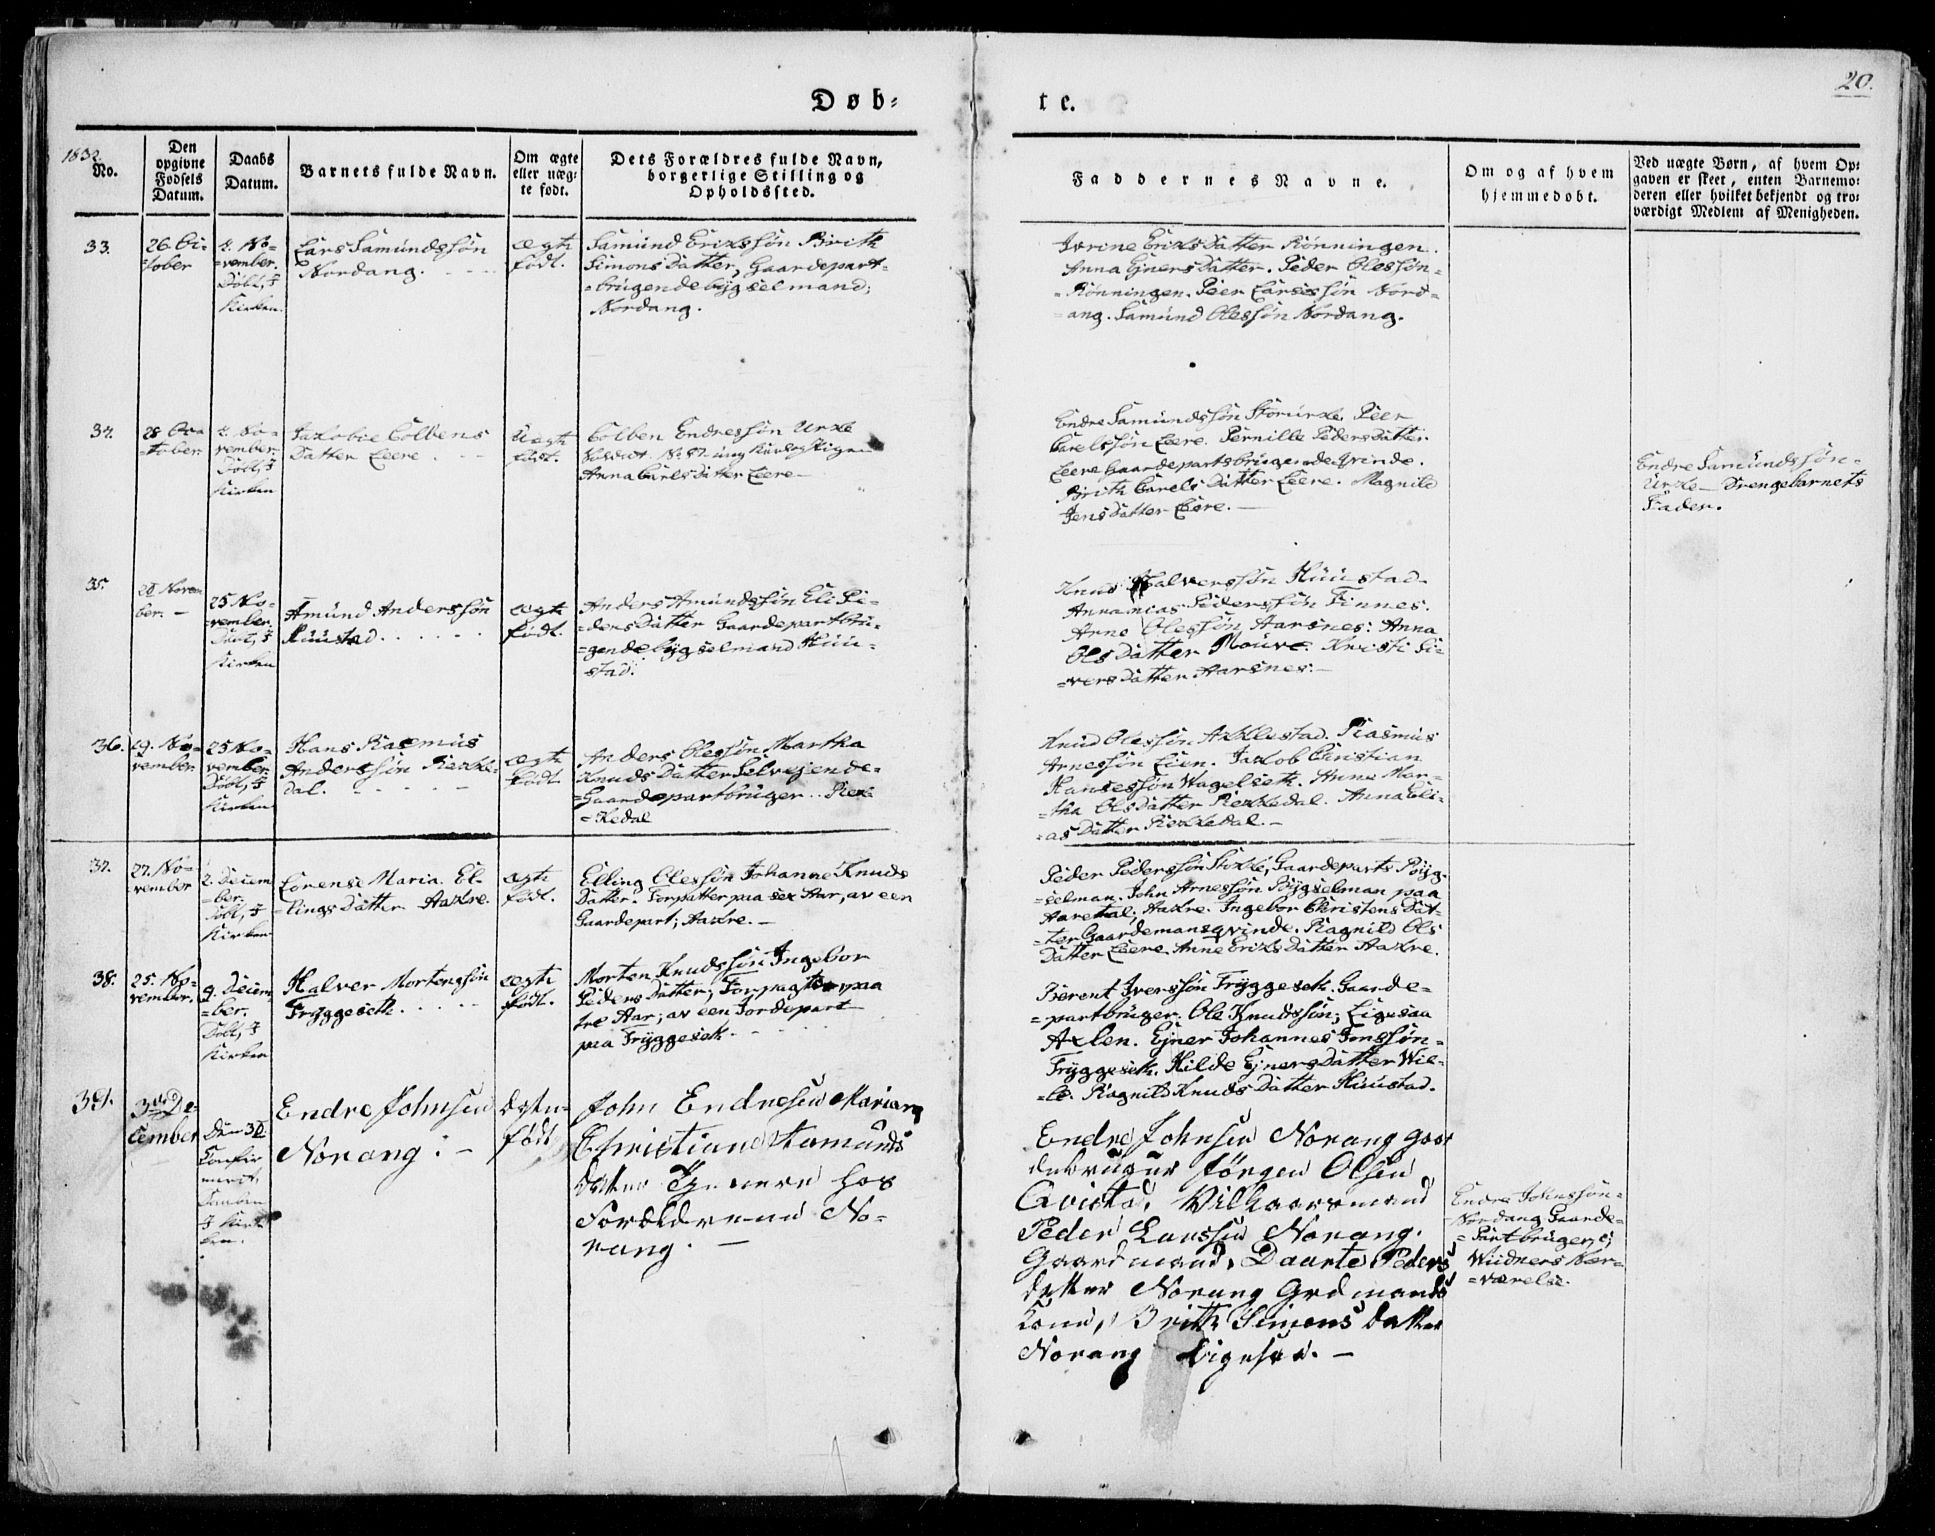 20.
Døb-
te.
1832.
No.
Den
opgivne
Fødsels
Datum.
Daabs
Datum.
Barnets fulde Navn.
Om ægte
eller uæg-
te født.
Dets Forældres fulde Navn,
borgerlige Stilling og
Opholdssted.
Faddernes Navne.
Om og af hvem
hjemmedøbt.
Ved uægte Børn, af hvem Op-
gaven er skeet, enten Barnemo-
deren eller hvilket bekjendt og tro-
værdigt Medlem af Menigheden.
33.
26. Oc-
=tober
4. No=
=vember.
Döbt, I
Kirken.
Lars Samundssøn
Nordang.
ægte
født.
Samund Erikssøn Brith
Simons Datter, Gaardepart=
=brugende bygselmand;
Nordang.
Iverine Eriks Datter Rønningen.
Anna Ejners Datter. Peder Olessøn=
=Rønningen. Peer Larsessøn Nord=
=ang. Samund Olessøn Nordang.
34.
28 Oc=
=tober.
4. No=
vember.
Döbt, I
Kirken
Jakobie Colbens
Datter Leere.
Uægte
født.
Colben Endressøn Urke
Soldat. No. 87.
Anna Carls Datter Leere—
Endre Samundssøn Storurke. Peer
Carelssøn Leere. Pernille Peders Datter.
Leere Gaardepartsbrugende qvinde.
Brith Carels Datter Leere. Magnild
Jens Datter Leere.—
Endre Samundssøn=
Urke— Drengebarnets
Fader.
35.
20 Novem
ber.—
25 No=
=vember.
Döbt, I
Kirken
Amund Anderssøn
Huustad
ægte
født.
Anders Amundssøn Eli Pe=
=ders Datter Gaardepartbru=
=gende bygselmand Huu=
stad.
Knud Halverssøn Huustad.
Annanias Pederssøn Finnes.
Arne Olessøn Aarsnes: Anna
Ols Datter Mouve. Kristi Si=
=vers Datter Aarsnes.—
36.
19. No=
vember.
25 No=
vember.
Döbt, I
Kirken
Hans Rasmus
Anderssøn Rekke=
dal.
ægte
født.
Anders Olessøn Martha
Knuds Datter Selvejende=
=Gaardepartbruger. Rek=
=kedal
Knud Olessøn Aklestad. Rasmus
Arnessøn Lien. Jakob Christian
Hansessøn Wagelseth. Anne Mar=
=tha Ols Datter Rekkedal. Anna Eli=
=as Datter Rekkedal.—
37.
27. No=
vember
2. Decem
=ber.
Döbt, I
Kirken
Lorense Maria El=
=lings Datter Aakre.
ægte
født.
Elling Olessøn Johanne Knuds
Datter. Forpatter paa sex Aar, av een
Gaardepart; Aakre.—
Peder Pederssøn Stokke, Gaardeparts Bÿg=
=selman. John Arnessøn Bÿgselman paa
Aaretal, Aakre. Ingebor Christens Dat=
=ter Gaardemansqvinde. Ragnild Ols
Datter Leere. Anne Eriks Datter Aakre.
38.
25. No=
vember.
9. Decem
=ber.
Döbt, I
Kirken
Halver Mortenssøn
Frÿggeseth.
ægte
født.
Morten Knudssøn Ingebor
Peders Datter; Forpagter paa
tre Aar; av een Jordepart
paa Frÿggeseth.
Berent Iverssøn Frÿggeseth. Gaarde=
=partbruger. Ole Knudssøn; Ligesaa
Axlen. Ejner Johannes Jonssøn=
Frÿggeseth. Hilde Ejners Datter Wil=
le. Ragnild Knuds Datter Huustad.
39.
3die De-
cember
Den 30
Confir
meret,
I Kir
ken.
Endre Johnsen
Norang :—
ægte
født
John Endresen Mariane
Christiane Aamunds
datter Tjenere hos
Forældrene No=
rang.—
Endre Johnsen Norang gaar
debruger Jörgen Olsen
Qvistad, Vilkaarsmand
Peder Larssen Norang.
Gaardmand, Daarte Peders
datter Norang Grdmands
kone, Brith Simonsdatter
Norang ligesaa.—
Endre Johnssøn=
Nordang Gaarde=
=Partbruger, i
Widners Nær=
=værelse.